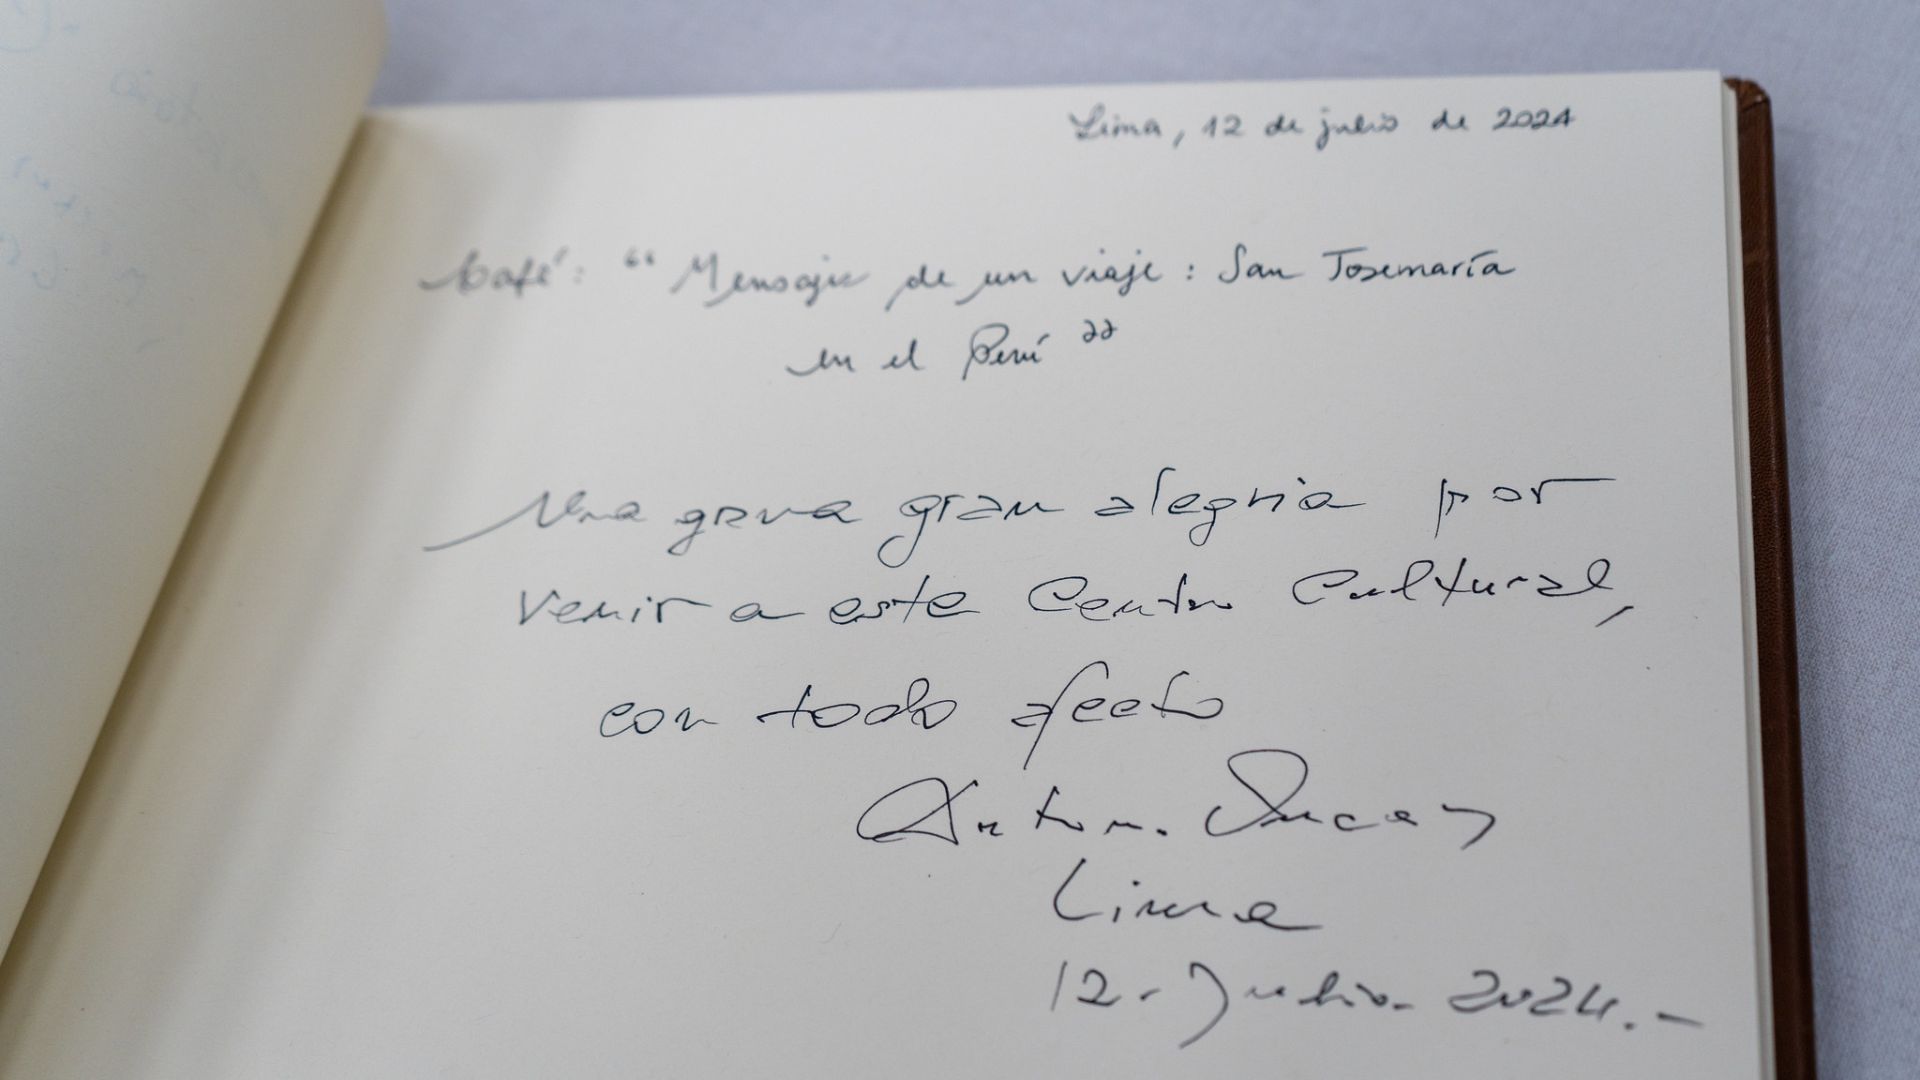 Lima, 12 de julio de 2024
Café: “Mensaje de un viaje: San Josemaría
en el Perú”
Una gran alegria por
venir a este Centro Cultural,
con todo afecto
Antoni
Lima
12 - Julio - 2024.-